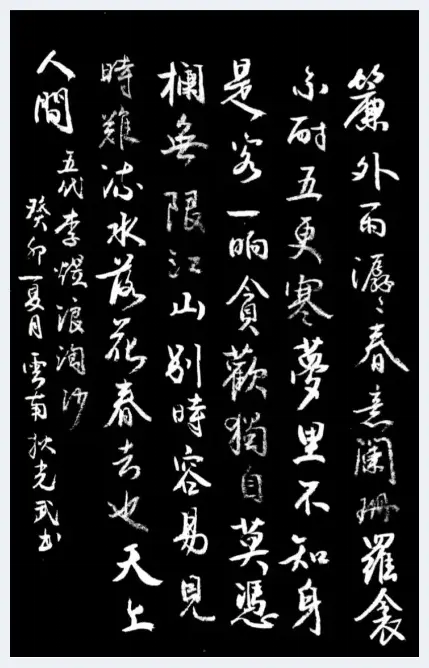 簾外雨潺〻春意瀾珊羅衾
不耐五更寒夢里不知身
是客一晌貪歡獨自莫憑
欄無限江山別時容易見
時難流水落花春去也天上
人間
五代李煜浪淘沙
癸卯夏月雲南狄光武书